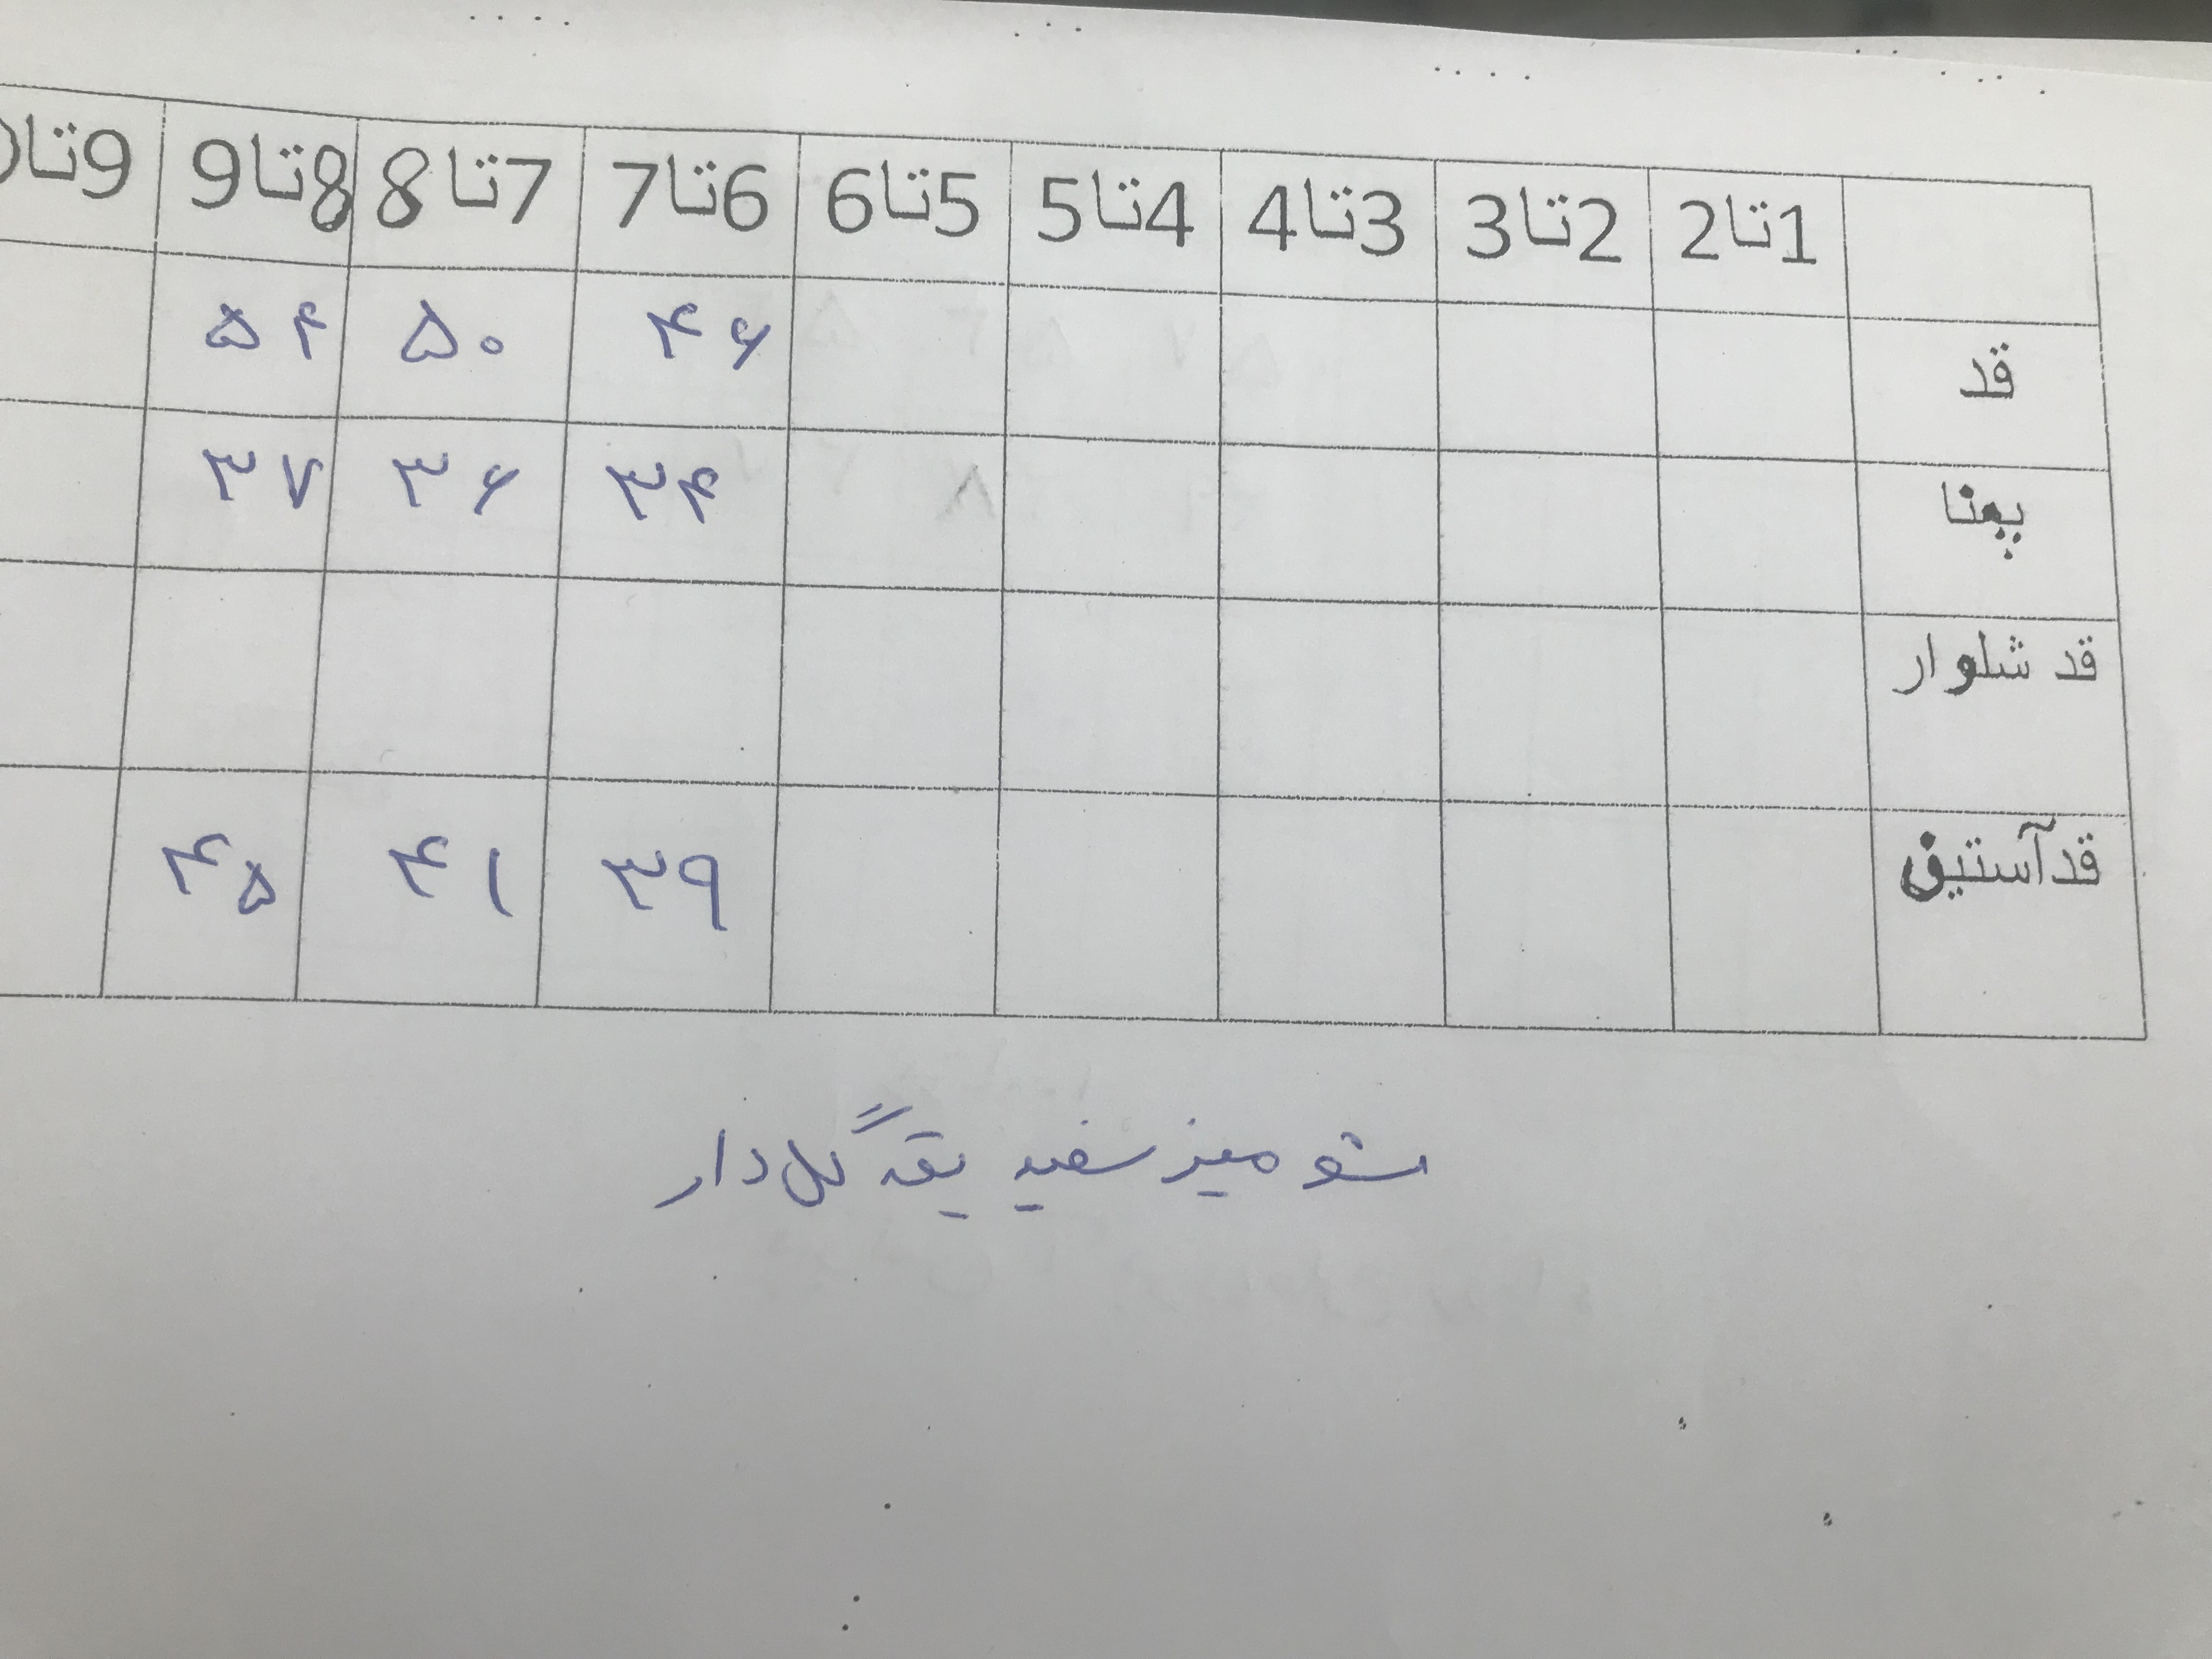 1تا2 2تا3 3تا4 4تا5 5تا6 6تا7 7تا8 8تا9 9تا
قد ۴۶ ۵۰ ۵۴
پهنا ۳۴ ۳۶ ۳۷
قد شلوار
قدآستین ۳۹ ۴۱ ۴۵
شومیز سفید یقه گل دار